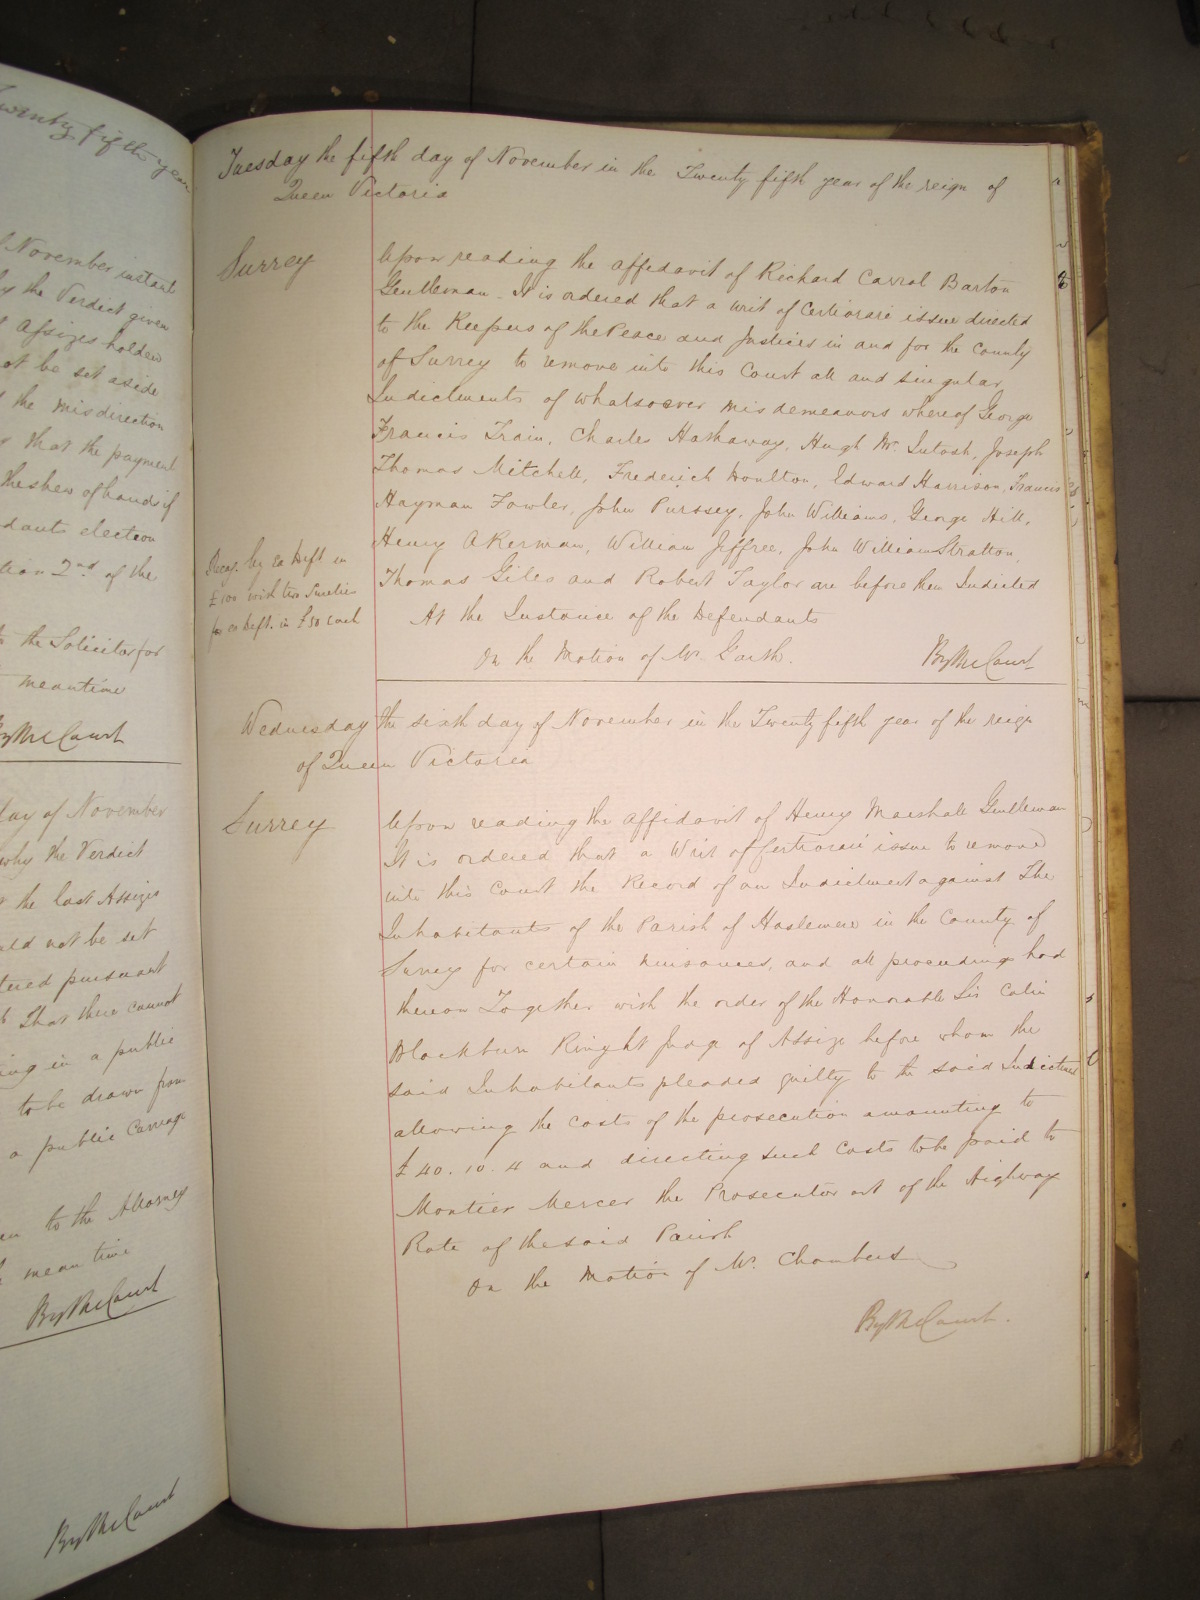 Twenty fifth year
November instant
the Verdict given
Assizes holden
not be set aside
the misdirection
that the payment
the shew of hands if
dants election
tion 2nd of the
to the Solicitor for
meantime
By the Court
day of November
why the Verdict
the last Assizes
uld not be set
tered pursuant
That there cannot
ing in a public
to be drawn from
a public Carriage
to the Attorney
mean time
By the Court
By the Court
Tuesday the fifth day of November in the Twenty fifth year of the reign of
Queen Victoria
Surrey
Upon reading the affidavit of Richard Carral Barton
Gentleman. It is ordered that a writ of Certiorari issue directed
to the Keepers of the Peace and Justices in and for the County
of Surrey to remove into this Court all and singular
Indictments of whatsoever misdemeanors whereof George
Francis Train, Charles Hathaway, Hugh Mc Intosh, Joseph
Thomas Mitchell, Frederick Moulton, Edward Harrison, Francis
Hayman Fowler, John Purssey, John Williams, George Hill,
Henry Akerman, William Jeffree, John William Stratton,
Thomas Giles and Robert Taylor are before them Indicted
At the Instance of the Defendants
On the Motion of Mr. Garth.
By the Court
Recog. by ea Deft. in
£100 with two Sureties
for ea Deft. in £50 each
Wednesday the sixth day of November in the Twenty fifth year of the reign
of Queen Victoria
Surrey
Upon reading the affidavit of Henry Marshall Gentleman
It is ordered that a Writ of Certiorari issue to remove
into this Court the Record of an Indictment against The
Inhabitants of the Parish of Haslemere in the County of
Surrey for certain nuisances, and all proceedings had
thereon Together with the order of the Honorable Sir Colin
Blackburn Knight Judge of Assize before whom the
said Inhabitants pleaded guilty to the said Indictment
allowing the Costs of the prosecution amounting to
£40.10.4 and directing such Costs to be paid to
Montier Mercer the Prosecutor out of the Highway
Rate of the said Parish
On the Motion of Mr. Chambers
By the Court.